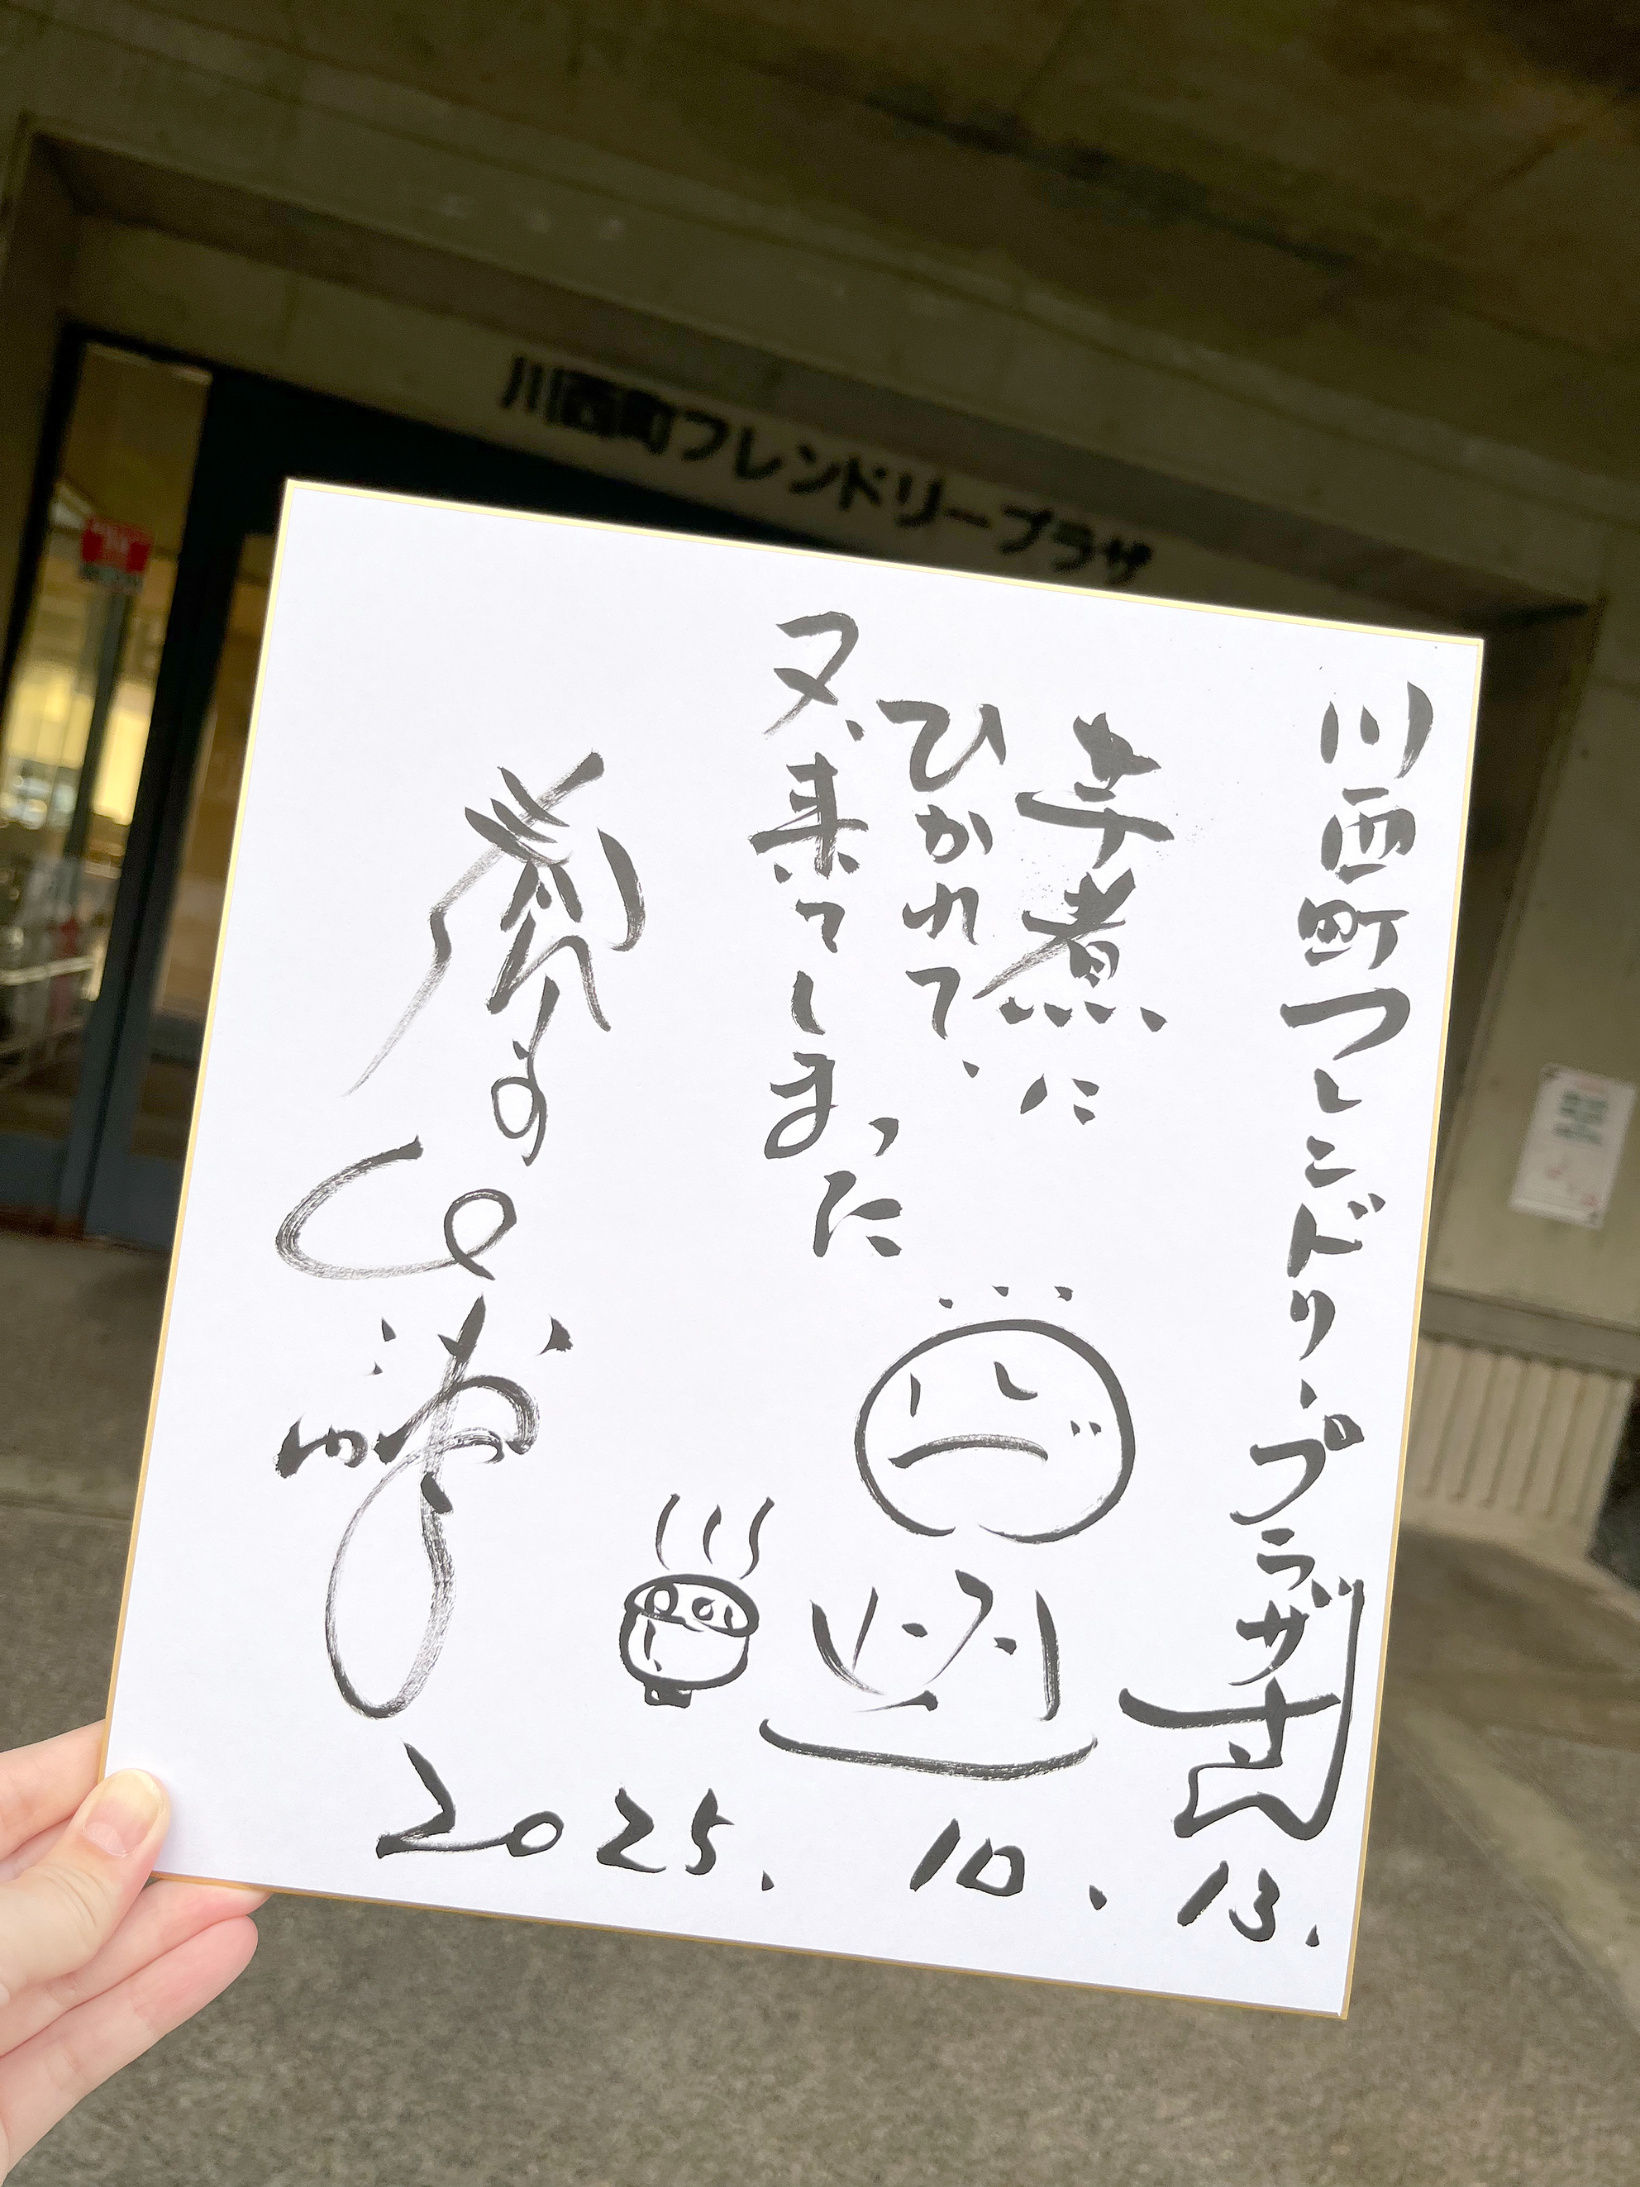 川西町フレンドリープラザ
川西町フレンドリープラザさん
芋煮に
ひかれて、
又、来てしまった
2025. 10. 13.